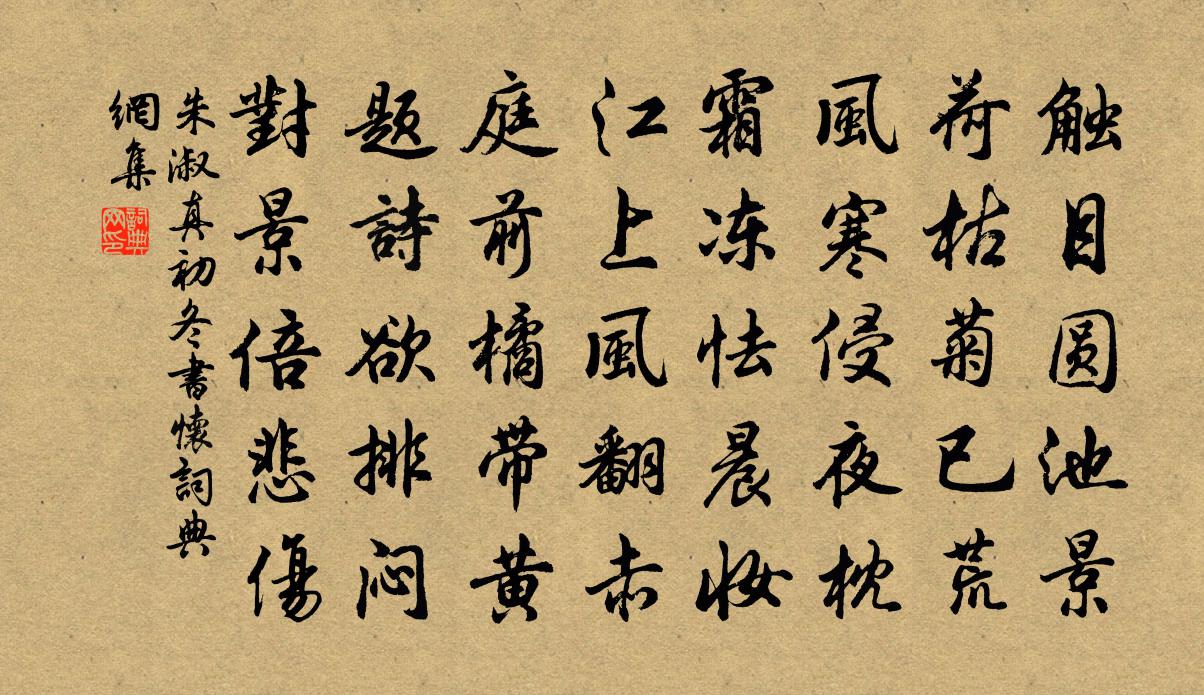 触目圆池景
荷枯菊已荒
風寒侵夜枕
霜冻怯晨妆
江上風翻赤
庭前橘带黄
题詩欲排闷
對景倍悲傷
朱淑真初冬書懷詞典
網集
詞典
网印